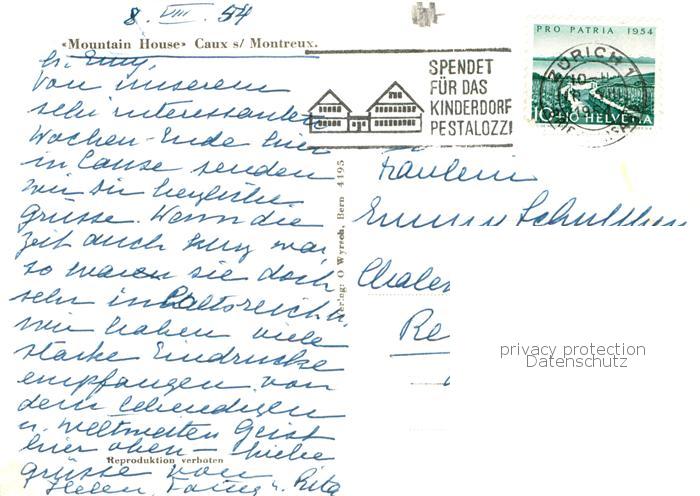 8. VIII. 54
«Mountain House» Caux s/ Montreux.
Emmy,
Von unserem
sehr interessanten
Wochen-Ende hier
in Caux senden
wir dir herzliche
Grüsse. Wenn die
Zeit auch kurz war
so waren sie doch
sehr
wir haben viele
starke Eindrücke
empfangen von
dem lebendigen
u. weltweiten Geist
hier oben – Liebe
Reproduktion verboten
Grüsse von
Helen, u. Rita
O Wyrsch, Bern 4195
SPENDET
FÜR DAS
KINDERDORF
PESTALOZZI
PRO PATRIA 1954
ZÜRICH 1
10 HELVETIA
Fräulein
Chalet
Re
privacy protection
Datenschutz